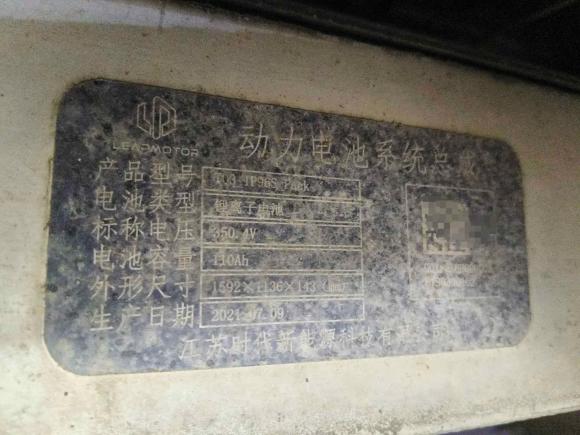 LEAPMOTOR
动力电池系统总成
产品型号 T03-1P96S Pack
电池类型 锂离子电池
标称电压 350.4V
电池容量 110Ah
外形尺寸 1592×1136×143 (mm)
生产日期 2021.07.09
江苏时代新能源科技有限公司